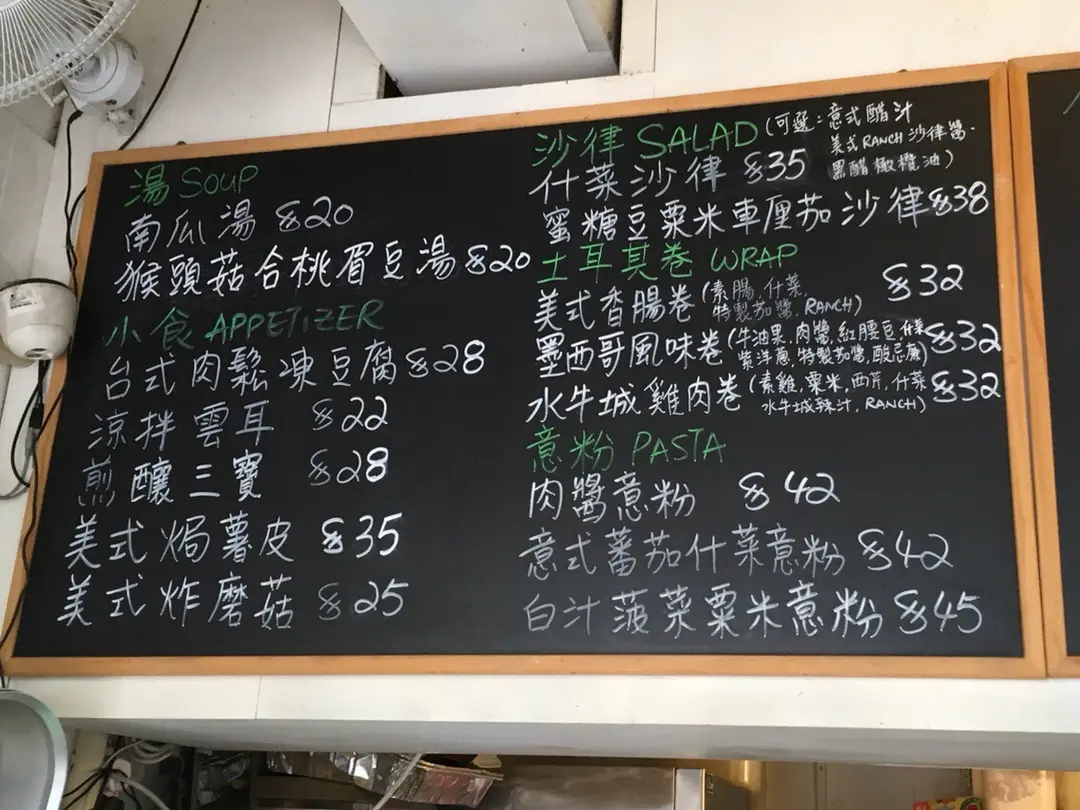 湯 SOUP
南瓜湯 $20
猴頭菇合桃眉豆湯 $20
小食 APPETIZER
台式肉鬆凍豆腐 $28
涼拌雲耳 $22
煎釀三寶 $28
美式焗薯皮 $35
美式炸磨菇 $25
沙律 SALAD (可選：意式醋汁
美式RANCH沙律醬.
黑醋橄欖油)
什菜沙律 $35
蜜糖豆粟米車厘茄沙律 $38
土耳其卷 WRAP
美式香腸卷 (素腸, 什菜, 特製茄醬, RANCH) $32
墨西哥風味卷 (牛油果, 肉醬, 紅腰豆, 什菜 紫洋蔥, 特製茄醬, 酸忌廉) $32
水牛城雞肉卷 (素雞, 粟米, 西芹, 什菜 水牛城辣汁, RANCH) $32
意粉 PASTA
肉醬意粉 $42
意式蕃茄什菜意粉 $42
白汁菠菜粟米意粉 $45